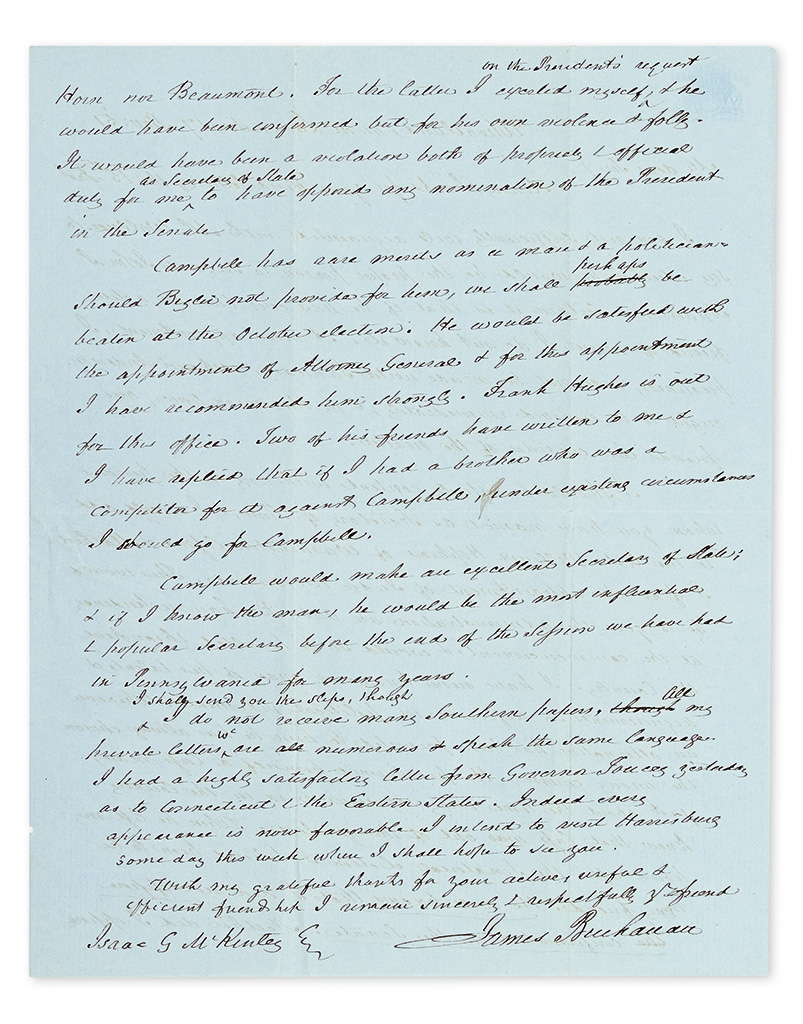 on the President's request
Horn nor Beaumont. For the latter I exerted myself, & he
would have been confirmed but for his own violence & folly.
It would have been a violation both of propriety & official
as Secretary of State
duty for me to have opposed any nomination of the President
in the Senate
Campbell has rare merits as a man & a politician.
perhaps
Should Bigler not provide for him, we shall probably be
beaten at the October election. He would be satisfied with
the appointment of Attorney General & for this appointment
I have recommended him strongly. Frank Hughes is out
for this office. Two of his friends have written to me &
I have replied that if I had a brother who was a
competitor for it against Campbell, under existing circumstances
I should go for Campbell.
Campbell would make an excellent Secretary of State;
& if I know the man, he would be the most influential
& popular Secretary before the end of the Session we have had
in Pennsylvania for many years.
I shall send you the slips, though
& I do not receive many Southern papers, though All my
private letters, wc are all numerous & speak the same language.
I had a highly satisfactory letter from Governor Toucey yesterday
as to Connecticut & the Eastern States. Indeed every
appearance is now favorable I intend to visit Harrisburg
some day this week when I shall hope to see you.
With my grateful thanks for your active, useful &
efficient friendship I remain sincerely & respectfully yr friend
Isaac G McKinley Esq James Buchanan